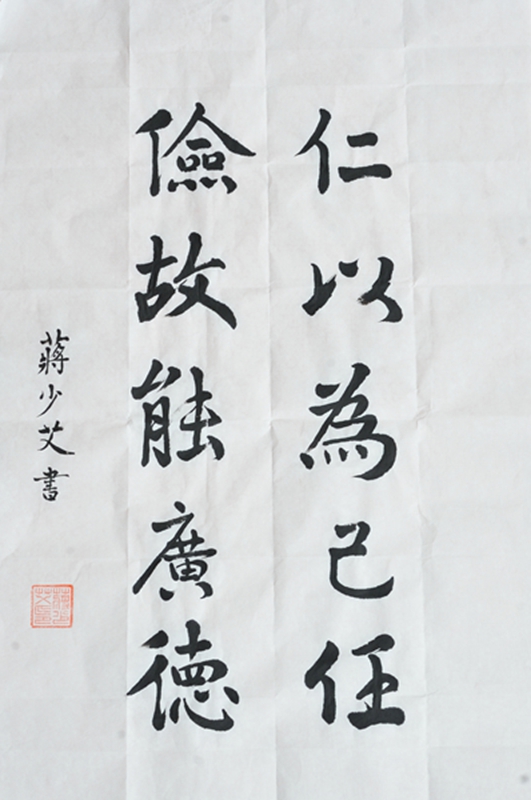 仁以為己任
儉故能廣德
蔣少艾書